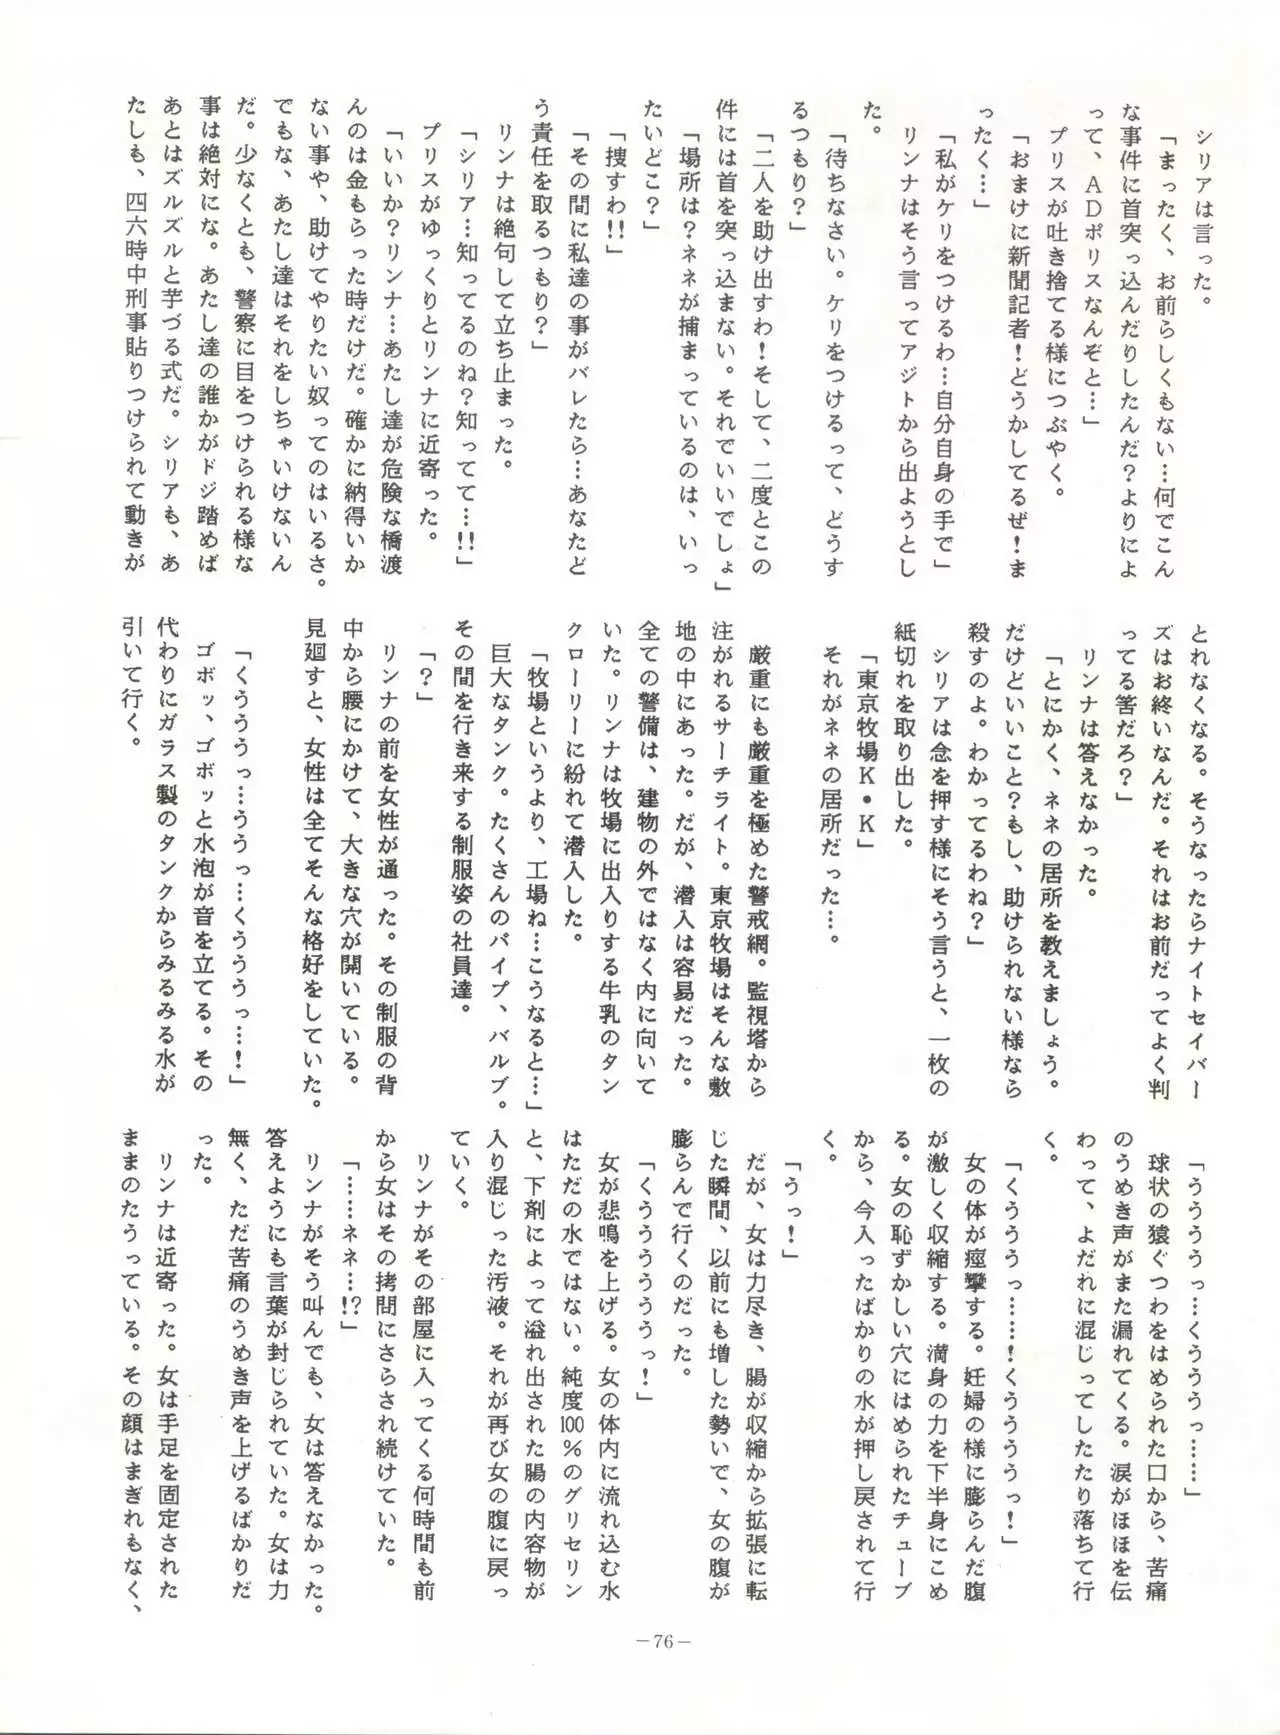 シリアは言った。
「まったく、お前らしくもない…何でこん
な事件に首突っ込んだりしたんだ？よりによ
って、ＡＤポリスなんぞと…」
プリスが吐き捨てる様につぶやく。
「おまけに新聞記者！どうかしてるぜ！ま
ったく…」
「私がケリをつけるわ…自分自身の手で」
リンナはそう言ってアジトから出ようとし
た。
「待ちなさい。ケリをつけるって、どうす
るつもり？」
「二人を助け出すわ！そして、二度とこの
件には首を突っ込まない。それでいいでしょ」
「場所は？ネネが捕まっているのは、いっ
たいどこ？」
「捜すわ!!」
「その間に私達の事がバレたら…あなたど
う責任を取るつもり？」
リンナは絶句して立ち止まった。
「シリア…知ってるのね？知ってて…!!」
プリスがゆっくりとリンナに近寄った。
「いいか？リンナ…あたし達が危険な橋渡
んのは金もらった時だけだ。確かに納得いか
ない事や、助けてやりたい奴ってのはいるさ。
でもな、あたし達はそれをしちゃいけないん
だ。少なくとも、警察に目をつけられる様な
事は絶対にな。あたし達の誰かがドジ踏めば
あとはズルズルと芋づる式だ。シリアも、あ
たしも、四六時中刑事貼りつけられて動きが
とれなくなる。そうなったらナイトセイバー
ズはお終いなんだ。それはお前だってよく判
ってる筈だろ？」
リンナは答えなかった。
「とにかく、ネネの居所を教えましょう。
だけどいいこと？もし、助けられない様なら
殺すのよ。わかってるわね？」
シリアは念を押す様にそう言うと、一枚の
紙切れを取り出した。
「東京牧場Ｋ・Ｋ」
それがネネの居所だった…。
厳重にも厳重を極めた警戒網。監視塔から
注がれるサーチライト。東京牧場はそんな敷
地の中にあった。だが、潜入は容易だった。
全ての警備は、建物の外ではなく内に向いて
いた。リンナは牧場に出入りする牛乳のタン
クローリーに紛れて潜入した。
「牧場というより、工場ね…こうなると…」
巨大なタンク。たくさんのパイプ、バルブ。
その間を行き来する制服姿の社員達。
「？」
リンナの前を女性が通った。その制服の背
中から腰にかけて、大きな穴が開いている。
見廻すと、女性は全てそんな格好をしていた。
「くうううっ…ううっ…くうううっ…！」
ゴボッ、ゴボッと水泡が音を立てる。その
代わりにガラス製のタンクからみるみる水が
引いて行く。
「うううっ…くうううっ……」
球状の猿ぐつわをはめられた口から、苦痛
のうめき声がまた漏れてくる。涙がほほを伝
わって、よだれに混じってしたたり落ちて行
く。
「くうううっ……！くううううっ！」
女の体が痙攣する。妊婦の様に膨らんだ腹
が激しく収縮する。満身の力を下半身にこめ
る。女の恥ずかしい穴にはめられたチューブ
から、今入ったばかりの水が押し戻されて行
く。
「うっ！」
だが、女は力尽き、腸が収縮から拡張に転
じた瞬間、以前にも増した勢いで、女の腹が
膨らんで行くのだった。
「くううううううっ！」
女が悲鳴を上げる。女の体内に流れ込む水
はただの水ではない。純度100％のグリセリン
と、下剤によって溢れ出された腸の内容物が
入り混じった汚液。それが再び女の腹に戻っ
ていく。
リンナがその部屋に入ってくる何時間も前
から女はその拷問にさらされ続けていた。
「……ネネ…!?」
リンナがそう叫んでも、女は答えなかった。
答えようにも言葉が封じられていた。女は力
無く、ただ苦痛のうめき声を上げるばかりだ
った。
リンナは近寄った。女は手足を固定された
ままのたうっている。その顔はまぎれもなく、
－76－